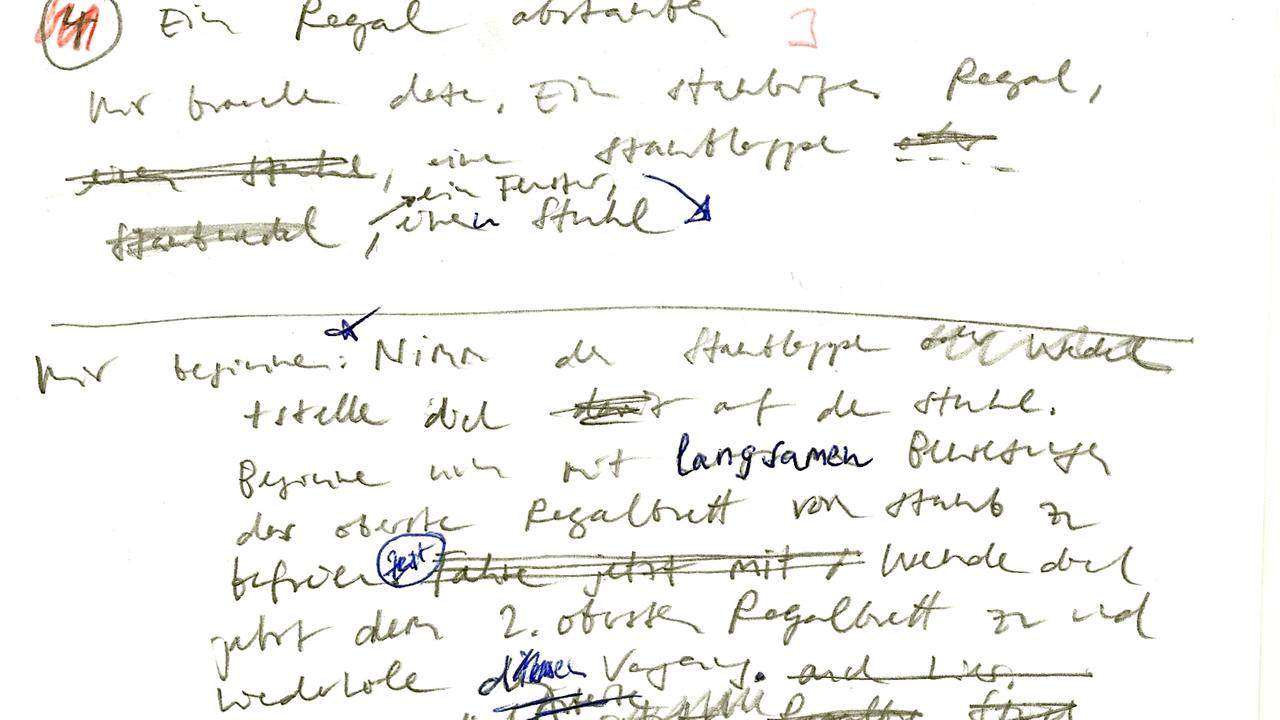 Ein Regal abstauben
Wir brauchen dazu, Ein staubiges Regal,
einen Stuhl, eine Staubläppe oder
ein Fenster,
Staubwedel, einen Stuhl
Wir beginnen: Nimm den Staubläppe oder Wedel
+ stelle dich damit auf den Stuhl.
Beginne nun mit langsamen Bewegungen
das oberste Regalbrett von Staub zu
befreien. jetzt Fahre jetzt mit Wende dich
jetzt dem 2. obersten Regalbrett zu und
wiederhole diesen Vorgang. auch hier.